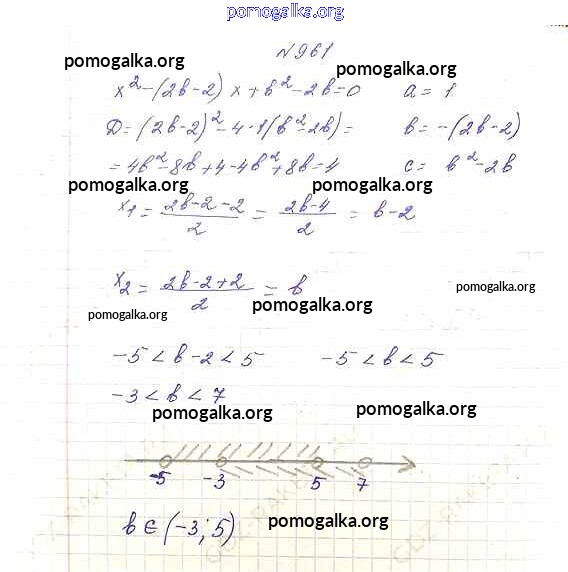 pomogalka.org
№961
pomogalka.org
pomogalka.org
x² - (2b-2) x + b² - 2b = 0 a = 1
D = (2b-2)² - 4·1(b²-2b) = b = -(2b-2)
= 4b² - 8b + 4 - 4b² + 8b = 4 c = b² - 2b
pomogalka.org pomogalka.org
x₁ = (2b-2-2)/2 = (2b-4)/2 = b-2
x₂ = (2b-2+2)/2 = b
pomogalka.org
pomogalka.org
pomogalka.org
-5 < b-2 < 5 -5 < b < 5
-3 < b < 7
pomogalka.org pomogalka.org
-5 -3 5 7
b ∈ (-3; 5)
pomogalka.org